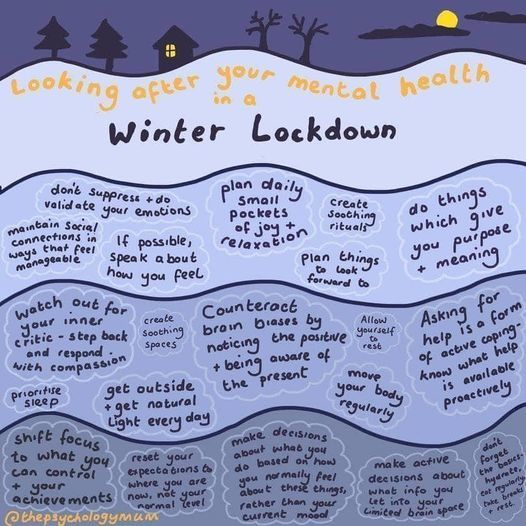 Looking after your mental health
in a
Winter Lockdown
don't suppress + do
validate your emotions
plan daily
small
pockets
of joy +
relaxation
create
soothing
rituals
do things
which give
you purpose
+ meaning
maintain social
connections in
ways that feel
manageable
If possible,
speak about
how you feel
Plan things
to look
forward to
Watch out for
your inner
critic - step back
and respond
with compassion
create
soothing
spaces
Counteract
brain biases by
noticing the positive
+ being aware of
the present
Allow
yourself
to
rest
Asking for
help is a form
of active coping-
know what help
is available
proactively
prioritise
sleep
get outside
+ get natural
light every day
move
your body
regularly
shift focus
to what you
can control
+ your
achievements
reset your
expectations to
where you are
now, not your
normal level
make decisions
about what you
do based on how
you normally feel
about these things,
rather than your
current mood
make active
decisions about
what info you
let into your
limited brain space
don't
forget
the basics-
hydrate,
eat regularly,
take breaks
+ rest.
@thepsychologymum